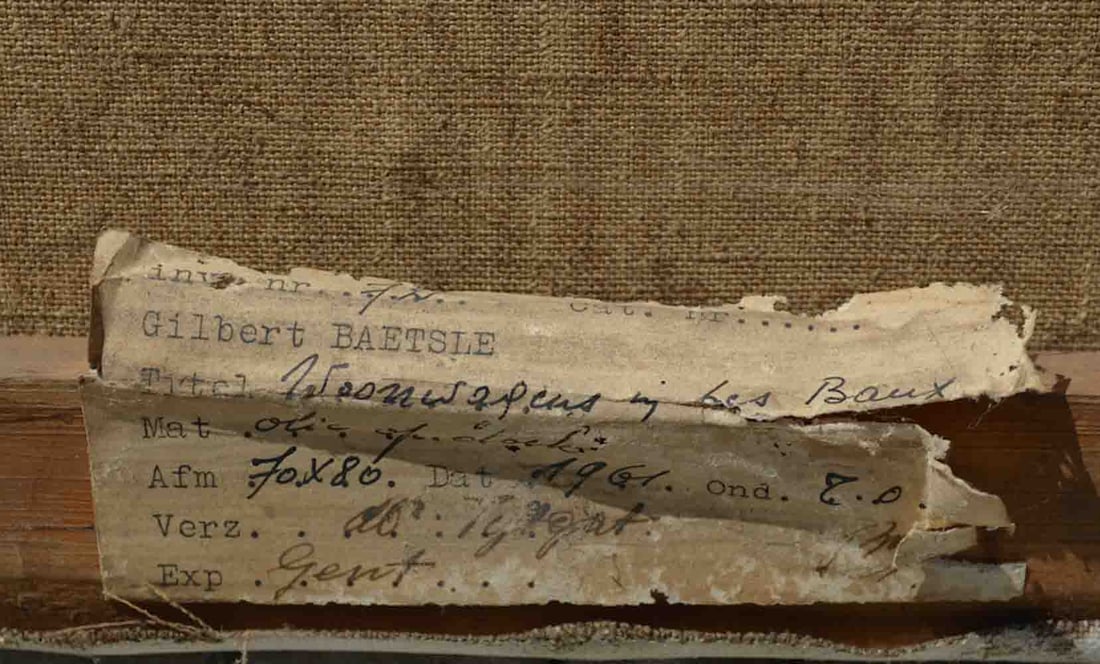 inv. nr. cat. nr......
Gilbert BAETSLE
Titel Woonwagens in Les Baux
Mat olie op doek
Afm 70X80. Dat 1961. Ond. r.o.
Verz. . .
Exp . Gent . . . .